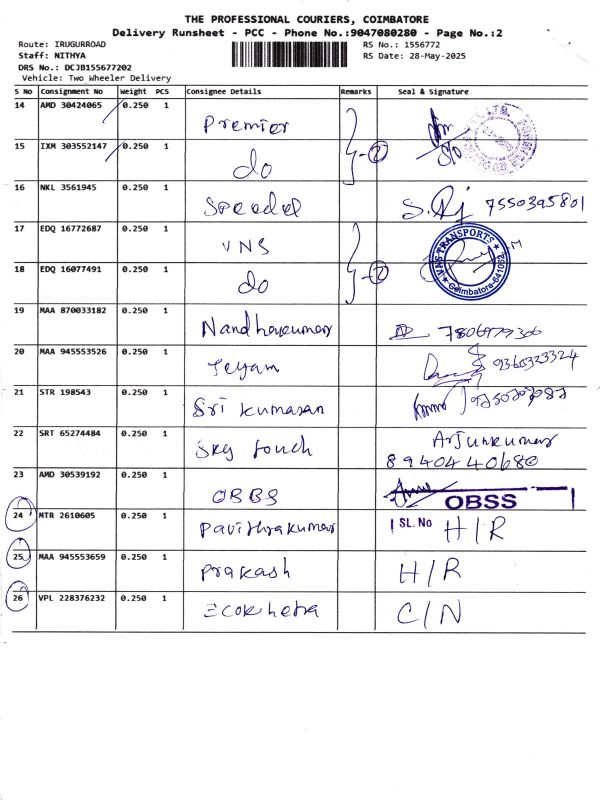 THE PROFESSIONAL COURIERS, COIMBATORE
Delivery Runsheet - PCC - Phone No.:9047080280 - Page No.:2
Route: IRUGURROAD
RS No.: 1556772
Staff: NITHYA
RS Date: 28-May-2025
DRS No.: DCJB155677202
Vehicle: Two Wheeler Delivery
S No Consignment No Weight PCS Consignee Details Remarks Seal & Signature
14 AMD 30424065 0.250 1 Premier
15 IXM 303552147 0.250 1 do
2
16 NKL 3561945 0.250 1 S.Rj 7550395801
17 EDQ 16772687 0.250 1 VNS
VNS TRANSPORTS
Coimbatore-641062
18 EDQ 16077491 0.250 1 do
2
19 MAA 870033182 0.250 1 Nandhakumar
20 MAA 945553526 0.250 1 Jeyam 9360323324
21 STR 198543 0.250 1 Sri Kumaran
22 SRT 65274484 0.250 1 Sky touch Arjunkumar
8940440680
23 AMD 30539192 0.250 1 OBBS
OBSS
24 MTR 2610605 0.250 1 Pavithrakumar SL. No H/R
25 MAA 945553659 0.250 1 Prakash H/R
26 VPL 228376232 0.250 1 C/N